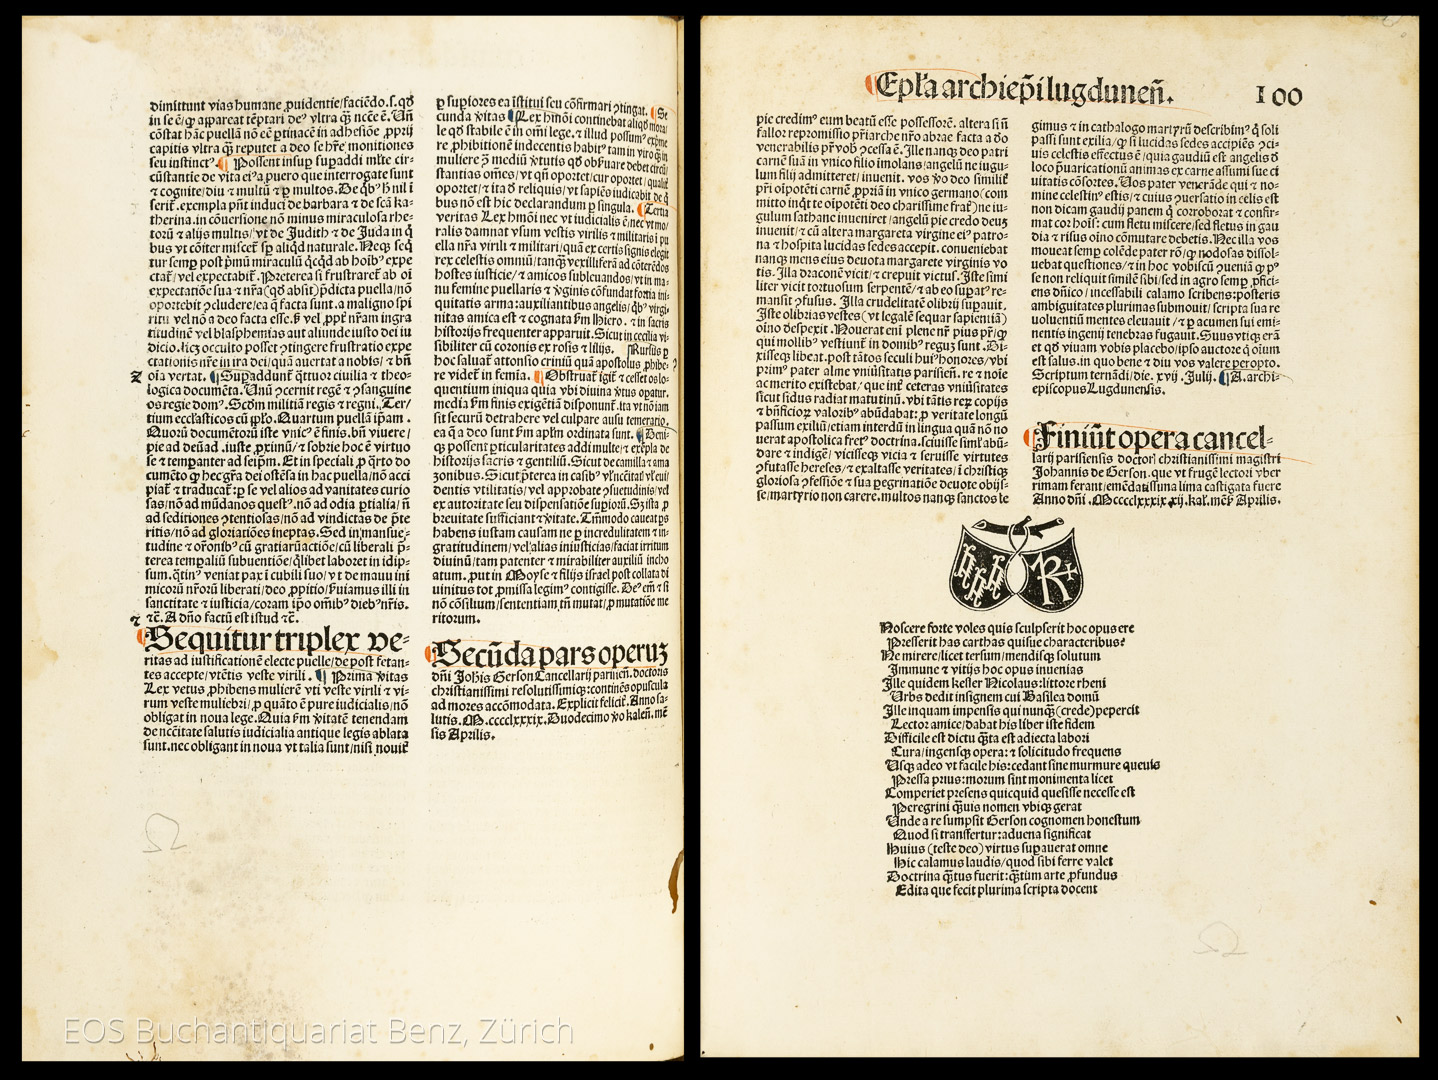 dimittunt vias humane ꝓuidentie/faciēdo.s.qđ
in se ē/ꝙ appareat tēptari deꝰ vltra ꝙ̄ ncēe ē.Un̄
cōstat hāc puellā nō eē ꝑtinacē in adhesiōe ꝓprij
capitis vltra ꝙ̄ reputet a deo se hr̄e monitiones
seu instinctꝰ. Possent insuꝑ suꝑaddi ml̄te cir-
cūstantie de vita eiꝰ a puero que interrogate sunt
⁊ cognite/diu ⁊ multū ⁊ ꝑ multos.De qb̄ꝰ h̄ nil ī
serit̄.exempla pn̄t induci de barbara ⁊ de scā ka-
therina.in cōuersione nō minus miraculosa rhe-
torū ⁊ alijs multis/vt de Judith ⁊ de Juda in q̄
bus vt cōiter miscet̄ sꝑ aliqd naturale. Neqꝫ seq̄
tur semꝑ post pͥmū miraculū qcqd ab hoībꝰ expe
ctat̄/vel expectabit̄. Preterea si frustraret̄ ab oī
expectatiōe sua ⁊ nr̄a(qđ absit)p̄dicta puella/nō
oportebit ꝯcludere/ea q̄ facta sunt.a maligno spi
ritu vel nō a deo facta esse.s̄ vel ꝓpt̄ nr̄am ingra
titudinē vel blasphemias aut aliunde iusto dei iu
dicio.licꝫ occulto posset ꝯtingere frustratio expe
ctationis nr̄e in ira dei/quā auertat a nobis/⁊ bn̄
oīa vertat. Supaddunt̄ qttuor ciuilia ⁊ theo-
logica documēta. Unū ꝯcernit regē ⁊ ꝯsanguine
os regie domꝰ.Scdm militiā regis ⁊ regni. Ter/
tium ecclāsticos cū ꝓꝓlo.Quartum puellā ip̄am.
Quorū documētorū iste vnicꝰ ē finis.bn̄ viuere/
pie ad deū.iuste ꝓximū/⁊ sobrie hoc ē virtuo
se ⁊ temꝑanter ad seip̄m. Et in speciali ꝓ q̄rto do
cumēto ꝙ hec gr̄a dei ostēsa in hac puella/nō acci
piat̄ ⁊ traducat̄:ꝑ se vel alios ad vanitates curio
sas/nō ad mūdanos quest̄ꝰ.nō ad odia ꝑtialia/n̄
ad seditiones ꝯtentiosas/nō ad vindictas de p̄te
ritis/nō ad gloriatiōes ineptas.Sed in mansue-
tudine ⁊ or̄onib̄ꝰ cū gratiarūactiōe/cū liberali p̄-
terea tempaliū subuentiōe/qlibet laboret in idip-
sum.qtinꝰ veniat pax ī cubili suo/vt de manu ini
micorū nr̄orū liberati/deo ꝓpitio/ẜuiamus illi in
sanctitate ⁊ iusticia/coram ip̄o omīb̄ꝰ dieb̄ꝰ nr̄is.
⁊ ⁊c̄.A dn̄o factū est istud ⁊c̄.
Sequitur triplex ve-
ritas ad iustificationē electe puelle/de post fetan-
tes accepte/vtētis veste virili. Prima ꝟitas
Lex vetus ꝓhibens mulierē vti veste virili ⁊ vi-
rum veste muliebri/ꝓ quāto ē pure iudicialis/nō
obligat in noua lege.Quia ẜm ꝟitatē tenendam
de nccītate salutis iudicialia antique legis ablata
sunt.nec obligant in noua vt talia sunt/nisi nouit̄
ꝑ supiores ea īstitui seu cōfirmari ꝯtingat. Se
cunda ꝟitas Lex hmōi continebat aliqđ mora/
le qđ stabile ē in omī lege.⁊ illud possumꝰ exṗme
re ꝓhibitionē indecentis habitꝰ tam in viro ꝙ̄ in
muliere ꝯ mediū ꝟtutis qđ obẜuare debet circū/
stantias om̄es/vt qn̄ opoꝛtet/cur opoꝛtet/qualit̄
opoꝛtet/⁊ ita đ reliquis/vt sapiēs iudicabit de q̄
bus nō est hic declarandum ꝑ singula. Tertia
veritas Lex hmōi nec vt iudicialis ē/nec vt mo/
ralis damnat vsum vestis virilis ⁊ militaris ī pu
ella nr̄a virili ⁊ militari/quā ex certis signis elegit
rex celestis omniū/tanꝙ̄ vexilliferā ad cōterēdos
hostes iusticie/⁊ amicos subleuandos/vt in ma-
nu femine puellaris ⁊ ꝟginis cōfundat foꝛtia ini-
quitatis arma:auxiliantibus angelis/qb̄ꝰ virgi-
nitas amica est ⁊ cognata ẜm Hiero. ⁊ in sacris
historijs frequenter apparuit.Sicut in cecilia vi-
sibiliter cū coronis ex rosis ⁊ lilijs. Rursus ꝑ
hoc saluat̄ attonsio criniū quā apostolus ꝓhibe-
re videt̄ in femīa. Obstruat̄ igit̄ ⁊ cesset os lo-
quentium iniqua quia vbi diuina ꝟtus oꝑatur.
media ẜm finis exigētiā disponunt̄.ita vt nō iam
sit securū detrahere vel culpare ausu temerario.
ea q̄ a deo sunt ẜm apl̄m ordinata sunt. Deni-
qꝫ possent ꝑticularitates addi multe/⁊ exēpla de
historijs sacris ⁊ gentiliū.Sicut de camilla ⁊ ama
zonibus.Sicut p̄terea in casib̄ꝰ vl̄ ncc̄itatꝭ vl̄ eui/
dentis vtilitatis/vel approbate ꝯsuetudinis/vel
ex autoꝛitate seu dispensatiōe supioꝛū.Sꝫ ista ꝓ
breuitate sufficiant ⁊ ꝟitate.Tm̄modo caueat ꝑs
habens iustam causam ne ꝑ incredulitatem ⁊ in-
gratitudinem/vel alias iniusticias/faciat irritum
diuinū/tam patenter ⁊ mirabiliter auxiliū incho
atum.ꝓut in Moyse ⁊ filijs israel post collata di
uinitus tot ꝓmissa legimꝰ contigisse. Deꝰ em̄ ⁊ si
nō cōsilium/sententiam tn̄ mutat/ꝓ mutatiōe me
ritorum.
Secūda pars operuꝫ
dn̄i Joh̄is Gerson Cancellarij parisien̄.doctoris
christianissimi resolutissimiqꝫ:continēs opuscula
ad mores accōmodata.Explicit felicit̄.Anno sa-
lutis.M.cccclxxxix.Duodecimo ꝟo kalen̄.mē
sis Aprilis.
Epl̄a archiep̄i lugdunen̄. 100
pie credimꝰ eum beatū esse possessorē. altera si n̄
falloꝛ repromissio pr̄iarche nr̄o abrae facta a đo
venerabilis pr̄ vob̄ ꝯcessa ē.Ille nanqꝫ deo patri
carnē suā in vnico filio imolans/angelū ne iugu-
lum filij admitteret/inuenit. vos ꝟo deo similit̄
pr̄i oīpotēti carnē ꝓpriā in vnico germano/(com
mitto inqt te oīpotēti deo charissime frat̄)ne iu-
gulum sathane inueniret/angelū pie credo deuꝫ
inuenit/⁊ cū altera margareta virgine eiꝰ patro-
na ⁊ hospita lucidas sedes accepit. conueniebat
nanqꝫ mens eius deuota margarete virginis vo
tis. Illa draconē vicit/⁊ crepuit victus. Iste simi
liter vicit toꝛtuosum serpentē/⁊ ab eo supatꝰ re-
mansit ꝯfusus. Illa crudelitatē olibrij supauit.
Iste olibrias vestes(vt legalē sequar sapientiā)
oīno despexit. Nouerat em̄ plene nr̄ pius pr̄/ꝙ
qui mollibꝰ vestiunt̄ in domibꝰ regū sunt. Di-
xisseqꝫ libeat.post tātos seculi huiꝰ honoꝛes/vbi
primꝰ pater alme vniūsitatis parisien̄.re ⁊ noīe
ac merito existebat/que int̄ ceteras vniūsitates
sicut sidus radiat matutinū.vbi tātis reꝝ copijs
⁊ bn̄ficioꝝ valoribꝰ abūdabat:ꝓ veritate longū
passum exiliū/etiam interdū in lingua quā nō no
uerat apostolica fretꝰ doctrina.sciuisse siml̄ abū-
dare ⁊ indigē/vicisseqꝫ vicia ⁊ seruisse virtutes
ꝯfutasse hereses/⁊ exaltasse veritates/ī christiqꝫ
gloriosa ꝯfessiōe ⁊ sua ꝑegrinatiōe deuote obijs-
se/martyrio non carere.multos nanqꝫ sanctos le
gimus ⁊ in cathalogo martyrū describimꝰ q̄ soli
passi sunt exilia/ꝙ si lucidas sedes accipiēs ꝯci-
uis celestis effectus ē/quia gaudiū est angelis đ
loco p̄uaricationū animas ex carne assumi sue ci
uitatis cōsoꝛtes. Uos pater venerāde qui ⁊ no-
mine celestinꝰ estis/⁊ cuius ꝯuersatio in celis est
non dicam gaudij panem q̄ coꝛroboꝛat ⁊ confir-
mat coꝛ hoīs: cum fletu miscere/sed fletus in gau
dia ⁊ risus oīno cōmutare debetis.Nec illa vos
moueat semꝑ colēde pater rō/ꝙ nodosas dissol-
uebat questiones/⁊ in hoc vobiscū ꝯueniā ꝙ pꝰ
se non reliquit similē sibi/sed in agro semꝑ ꝓfici-
ens dn̄ico/incessabili calamo scribens:posteris
ambiguitates plurimas submouit/scripta sua re
uoluentiū mentes eleuauit/⁊ ꝑ acumen sui emi-
nentis ingenij tenebras fugauit.Suus vtiqꝫ erā
et qđ viuam vobis placebo/ipso auctoꝛe q̄ oīum
est salus.in quo bene ⁊ diu vos valere peropto.
Scriptum ternādi/die.xvij.Julij. A.archi-
episcopus Lugdunensis.
Finiūt opera cancel-
larij parisiensis doctoꝛꝭ christianissimi magistri
Johannis de Gerson.que vt frugē lectori vber
rimam ferant/emēdatissuna lima castigata fuere
Anno dn̄i .Mcccclxxxix.xij.kal.mēẜ Aprilis.
Noscere forte voles quis sculpserit hoc opus ere
Presserit has carthas quisue characteribus?
Ne mirere/licet tersum/mendisqꝫ solutum
Immune ⁊ vitijs hoc opus inuenias
Ille quidem kesler Nicolaus:littore rheni
Urbs dedit insignem cui Basilea domū
Ille inquam impensis qui nunꝙ̄(crede)pepercit
Lector amice/dabat his liber iste fidem
Difficile est dictu ꝙ̄ta est adiecta labori
Cura/ingensqꝫ opera: ⁊ solicitudo frequens
Usqꝫ adeo vt facile his:cedant sine murmure queuis
Pressa prius:morum sint monimenta licet
Comperiet presens quicquid quesisse necesse est
Peregrini ꝙ̄uis nomen vbiqꝫ gerat
Unde a re sumpsit Gerson cognomen honestum
Quod si transfertur:aduena significat
Huius (teste deo) virtus supauerat omne
Hic calamus laudis/quod sibi ferre valet
Doctrina ꝙ̄tus fuerit:ꝙ̄tum arte ꝓfundus
Edita que fecit plurima scripta docent
EOS Buchantiquariat Benz, Zürich